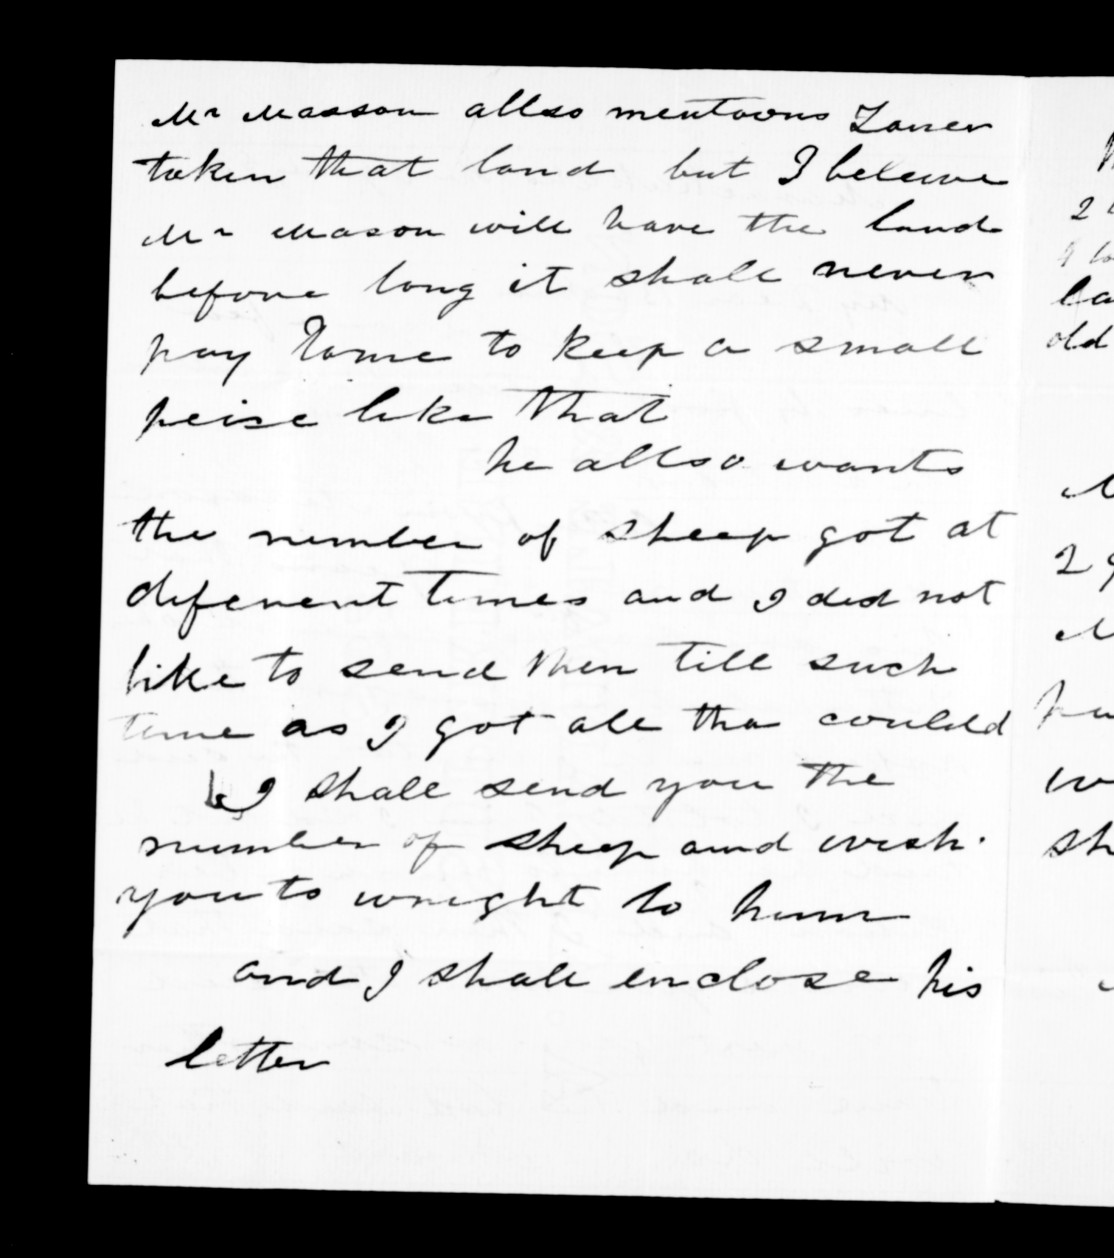 Mr Masson allso mentoons Torrer
taken that land but I beleive
Mr Mason will have the land
before long it shall never
pay Torne to keep a small
peise like that
he allso wants
the number of sheep got at
diferent times and I did not
like to send then till such
time as I got all tha coulld
I shall send you the
number of sheep and wish
you to wright to him
and I shall enclose his
letter
2
old
2
sh